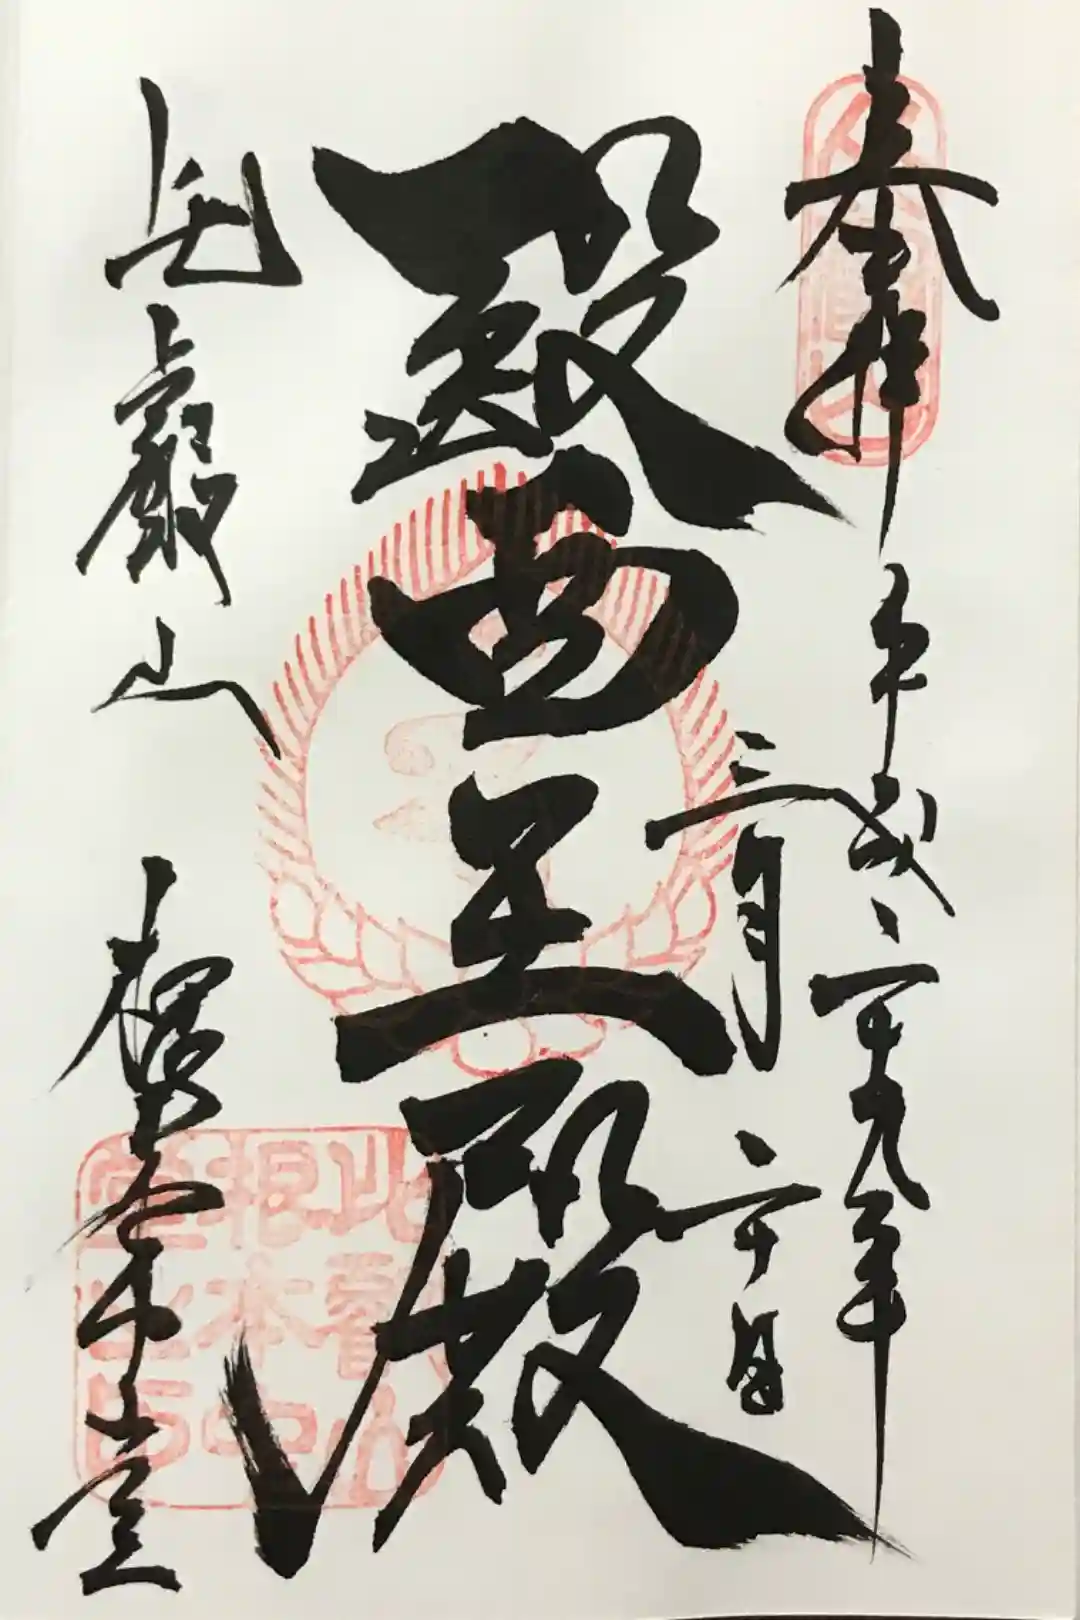 奉拝 平成二十九年
三月二十日
醫王殿
比叡山 根本中堂
比叡山
根本中
堂之印